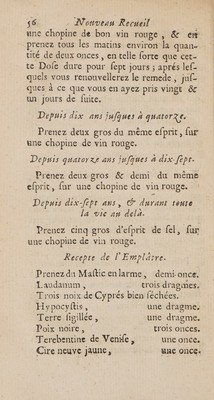 56 Nouveau Recueil
une chopine de bon vin rouge, & en
prenez tous les matins environ la quan-
tité de deux onces, en telle sorte que cet-
te Dose dure pour sept jours ; aprés les-
quels vous renouvellerez le remede, jus-
ques à ce que vous en ayez pris vingt &
un jours de suite.
Depuis dix ans jusques à quatorze.
Prenez deux gros du même esprit, sur
une chopine de vin rouge.
Depuis quatorze ans jusques à dix-sept.
Prenez deux gros & demi du même
esprit, sur une chopine de vin rouge.
Depuis dix-sept ans, & durant toute
la vie au delà.
Prenez cinq gros d'esprit de sel, sur
une chopine de vin rouge.
Recepte de l'Emplâtre.
Prenez du Mastic en larme, demi once.
Laudanum, trois dragmes.
Trois noix de Cyprés bien séchées.
Hypocystis, une dragme.
Terre sigillée, une dragme.
Poix noire, trois onces.
Terebentine de Venise, une once.
Cire neuve jaune, une once.